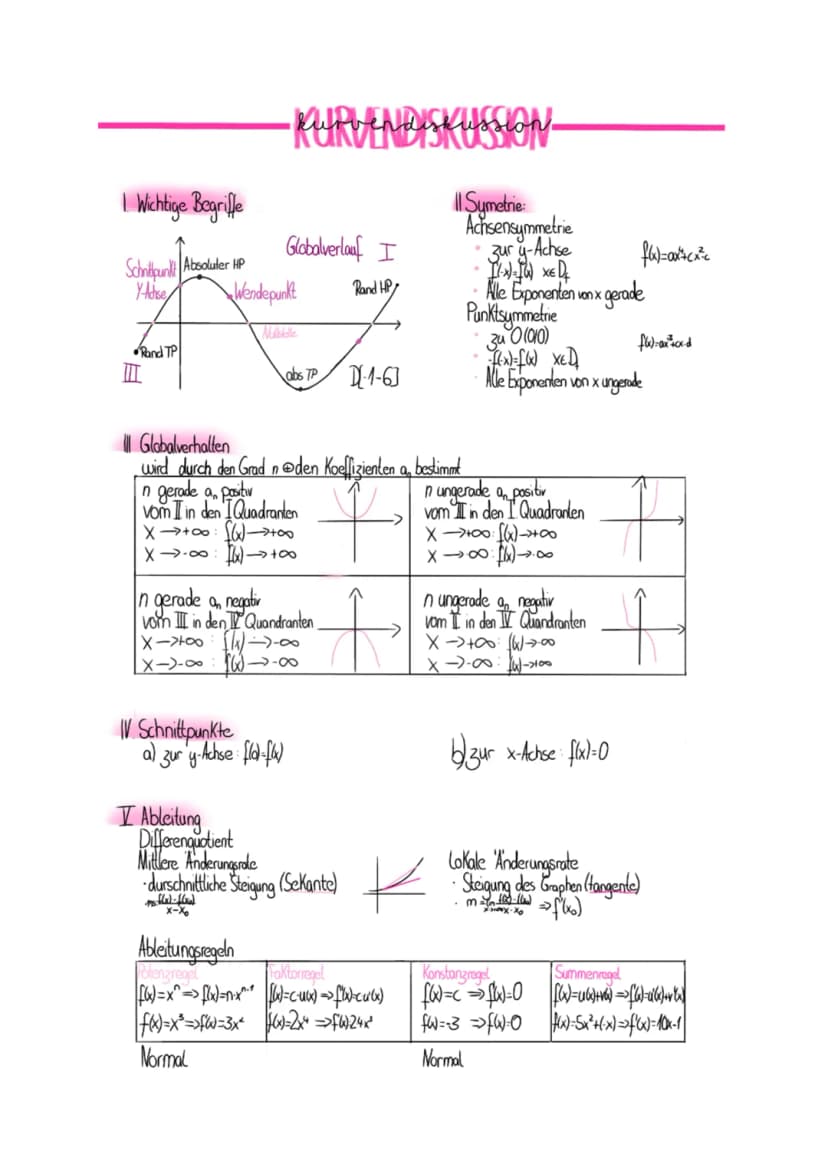 KURVENDISKUSSION
kurvendiskussion
I Wichtige Begriffe
Globalverlauf I
Schnittpunkt
Y-Achse
Absoluter HP
Wendepunkt
Rand HP
Nullstelle
Rand TP
III
abs TP
D[-1-6]
II Symetrie:
Achsensymmetrie
zur y-Achse
f(-x)=f(x) x∈Df
Alle Exponenten von x gerade
Punktsymmetrie
zu O(0|0)
-f(-x)=f(x) x∈Df
Alle Exponenten von x ungerade
III Globalverhalten
wird durch den Grad n ⊕ den Koeffizienten aₙ bestimmt
n gerade aₙ positiv
vom II in den I Quadranten
X →+∞ : f(x)→+∞
X →-∞ : f(x)→+∞
n ungerade aₙ positiv
vom III in den I Quadranten
X →+∞: f(x)→+∞
X →∞: f(x)→-∞
n gerade aₙ negativ
vom III in den IV Quandranten
X →+∞ : f(x)→-∞
X →-∞ : f(x)→-∞
n ungerade aₙ negativ
vom II in den IV Quandranten
X →+∞: f(x)→-∞
X →-∞: f(x)→+∞
IV Schnittpunkte
a) zur y-Achse:
b) zur x-Achse: f(x)=0
V Ableitung
Differenquotient
Mittlere Änderungsrate
·durschnittliche Steigung (Sekante)
f(x)-f(x₀)
x-x₀
Lokale Änderungsrate
· Steigung des Graphen (tangente)
· m= ⇒ f'(x₀)
Ableitungsregeln
Potenzregel
f(x)=xⁿ ⇒ f'(x)=n·xⁿ⁻¹
f(x)=x³ ⇒ f'(x)=3x²
Faktorregel
f(x)=c·u(x) ⇒ f'(x)=c·u'(x)
f(x)=2x⁴ ⇒
Konstanzregel
f(x)=c ⇒ f'(x)=0
f(x)=-3 ⇒ f'(x)=0
Summenregel
f(x)=u(x)+v(x) ⇒ f'(x)=u'(x)+v'(x)
f(x)=5x²+(-x) ⇒ f'(x)=10x-1
Normal
Normal